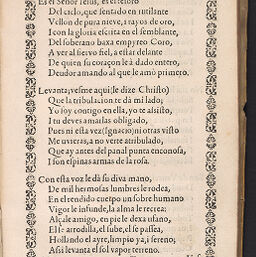 Es el Señor Iesus, es el tesoro
Del cielo, que sentado en rutilante
Vellon de pura nieve, i rayos de oro,
I con la gloria escrita en el semblante,
Del soberano baxa empyreo Coro,
A ver al siervo fiel, a estar delante
De quien su coraçon le à dado entero,
Deudor amando al que le amò primero.
Levanta; vesme aqui (le dize Christo)
Que la tribulacion te dà mi lado;
Yo soy contigo en ella, yo te assisto,
I tu deves amarlas obligado,
Pues ni esta vez (Ignacio) ni otras visto
Me uvieras, a no verte atribulado,
Que ay antes del panal punta enconosa,
I son espinas armas de la rosa.
Con esta voz le dà su diva mano,
De mil hermosas lumbres le rodea,
En el tendido cuerpo un sobre humano
Vigor le infunde, la alma le recrea:
Alçale amigo, en pie le dexa usano,
El se arrodilla, el sube, el se passea,
Hollando el ayre, limpio ya, i sereno;
Assi levanta el sol vapor terreno.